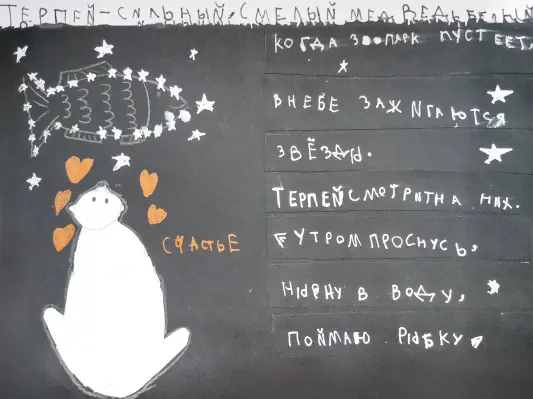 ТЕРПЕЙ-СИЛЬНЫЙ, СМЕЛЫЙ МЕДВЕДЬ БЕЛЫЙ
КОГДА ЗООПАРК ПУСТЕЕТ,
В НЕБЕ ЗАЖИГАЮТСЯ
ЗВЁЗДЫ.
ТЕРПЕЙ СМОТРИТ НА НИХ.
СЧАСТЬЕ
УТРОМ ПРОСНУСЬ,
НЫРНУ В ВОДУ,
ПОЙМАЮ РЫБКУ